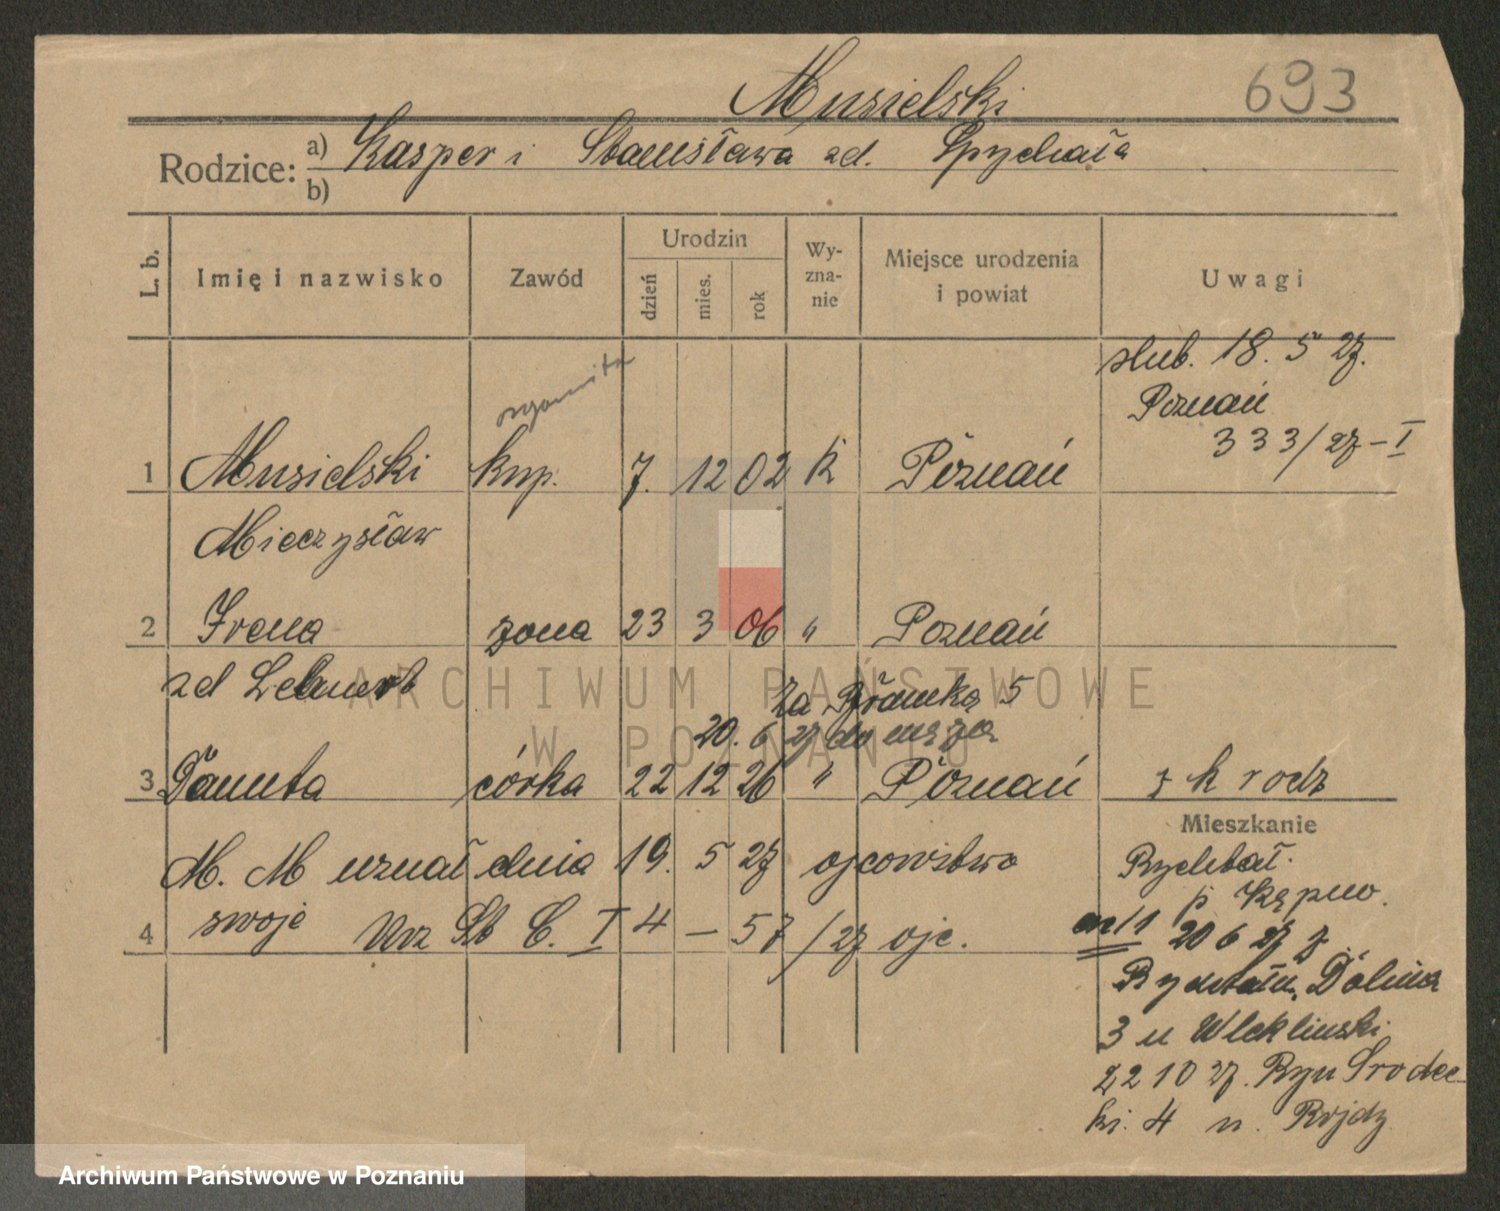 693
Musielski
Rodzice: a) Kasper i Stanisława zd. Spychała
b)
L. b. Imię i nazwisko Zawód Urodzin dzień mies. rok Wyznanie Miejsce urodzenia i powiat Uwagi
ślub. 18. 5 27.
Poznań
333/27 - I
1 Musielski kup. 7. 12 02 k Poznań
Mieczysław
2 Irena żona 23 3 06 " Poznań
zd
Za Bramką 5
20. 6 27 do męża
3 Danuta córka 22 12 26 " Poznań z k rodz
Mieszkanie
M. M uznał dnia 19. 5 27 ojcowstwo
Rychtal.
p Kępno.
4 swoje Urz St C. I 4 - 57/27 ojc.
20 6 27 z
Dolina
3 u
22 10 27. Ryn Srodec-
ki. 4 u.
ARCHIWUM PAŃSTWOWE
W POZNANIU
Archiwum Państwowe w Poznaniu